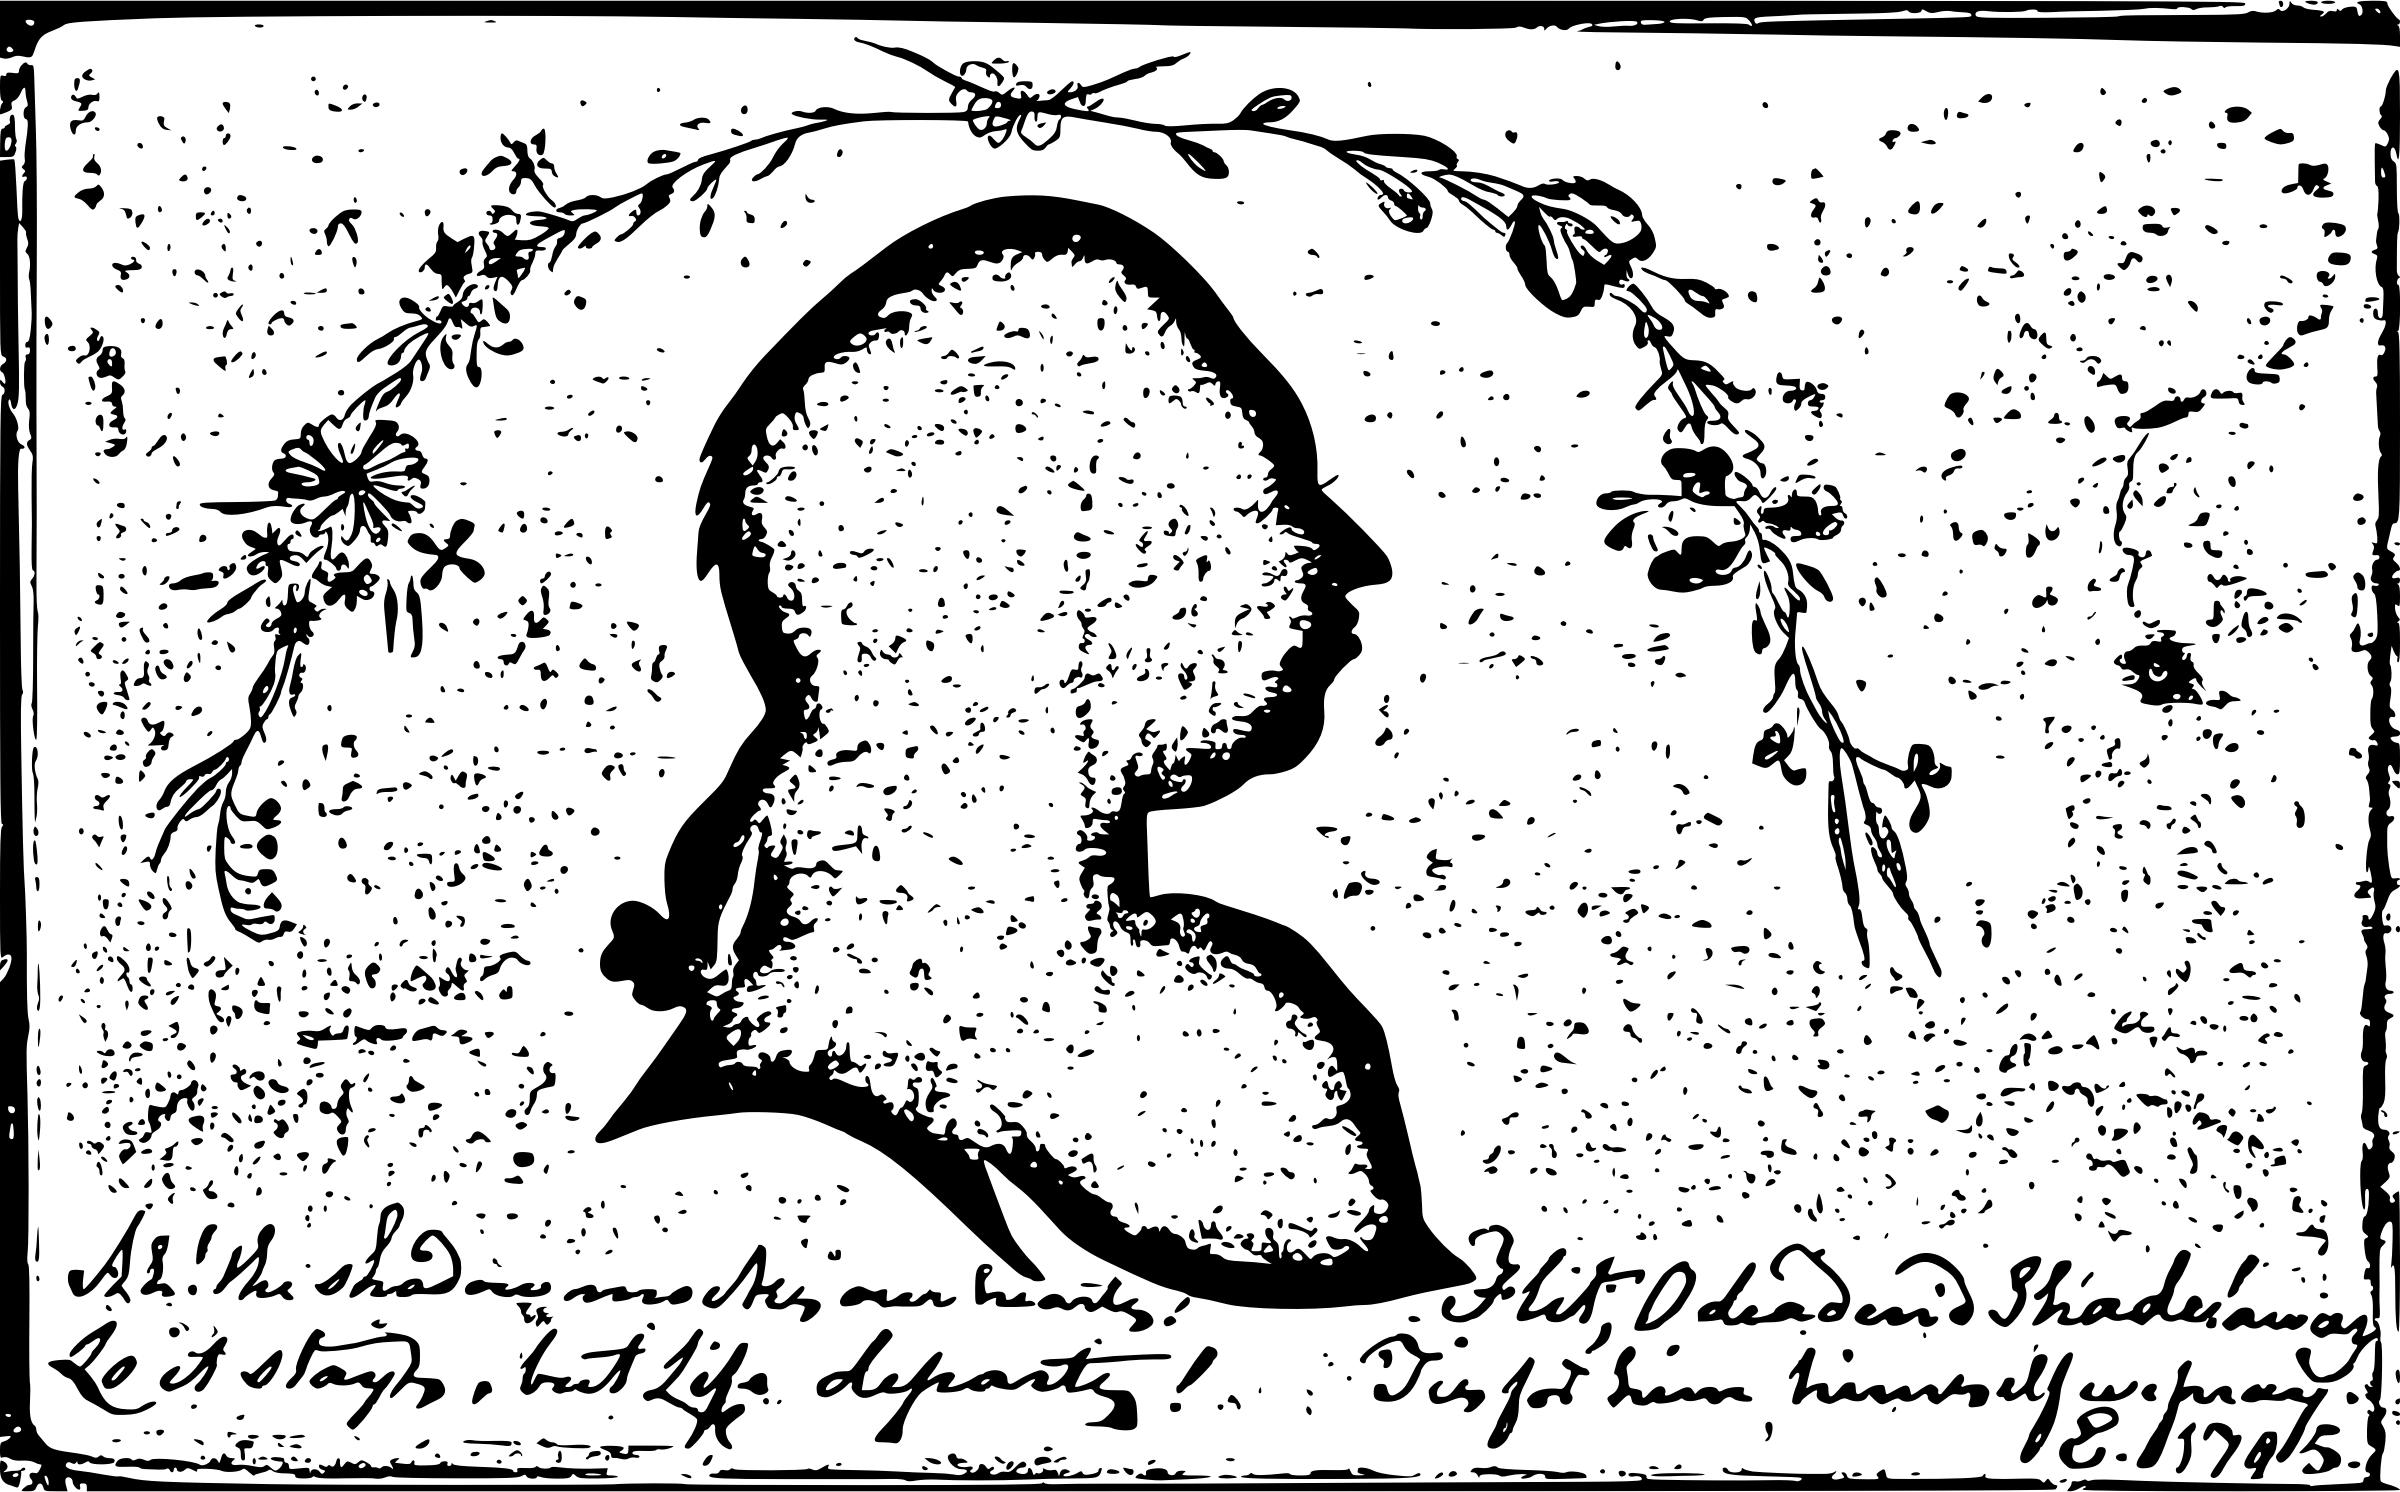 Ah! the shadow mocks our hearts! Flit, O dead end Shade, away
So it stays, but life departs! Tis for him himself we pray.
E. 1795.